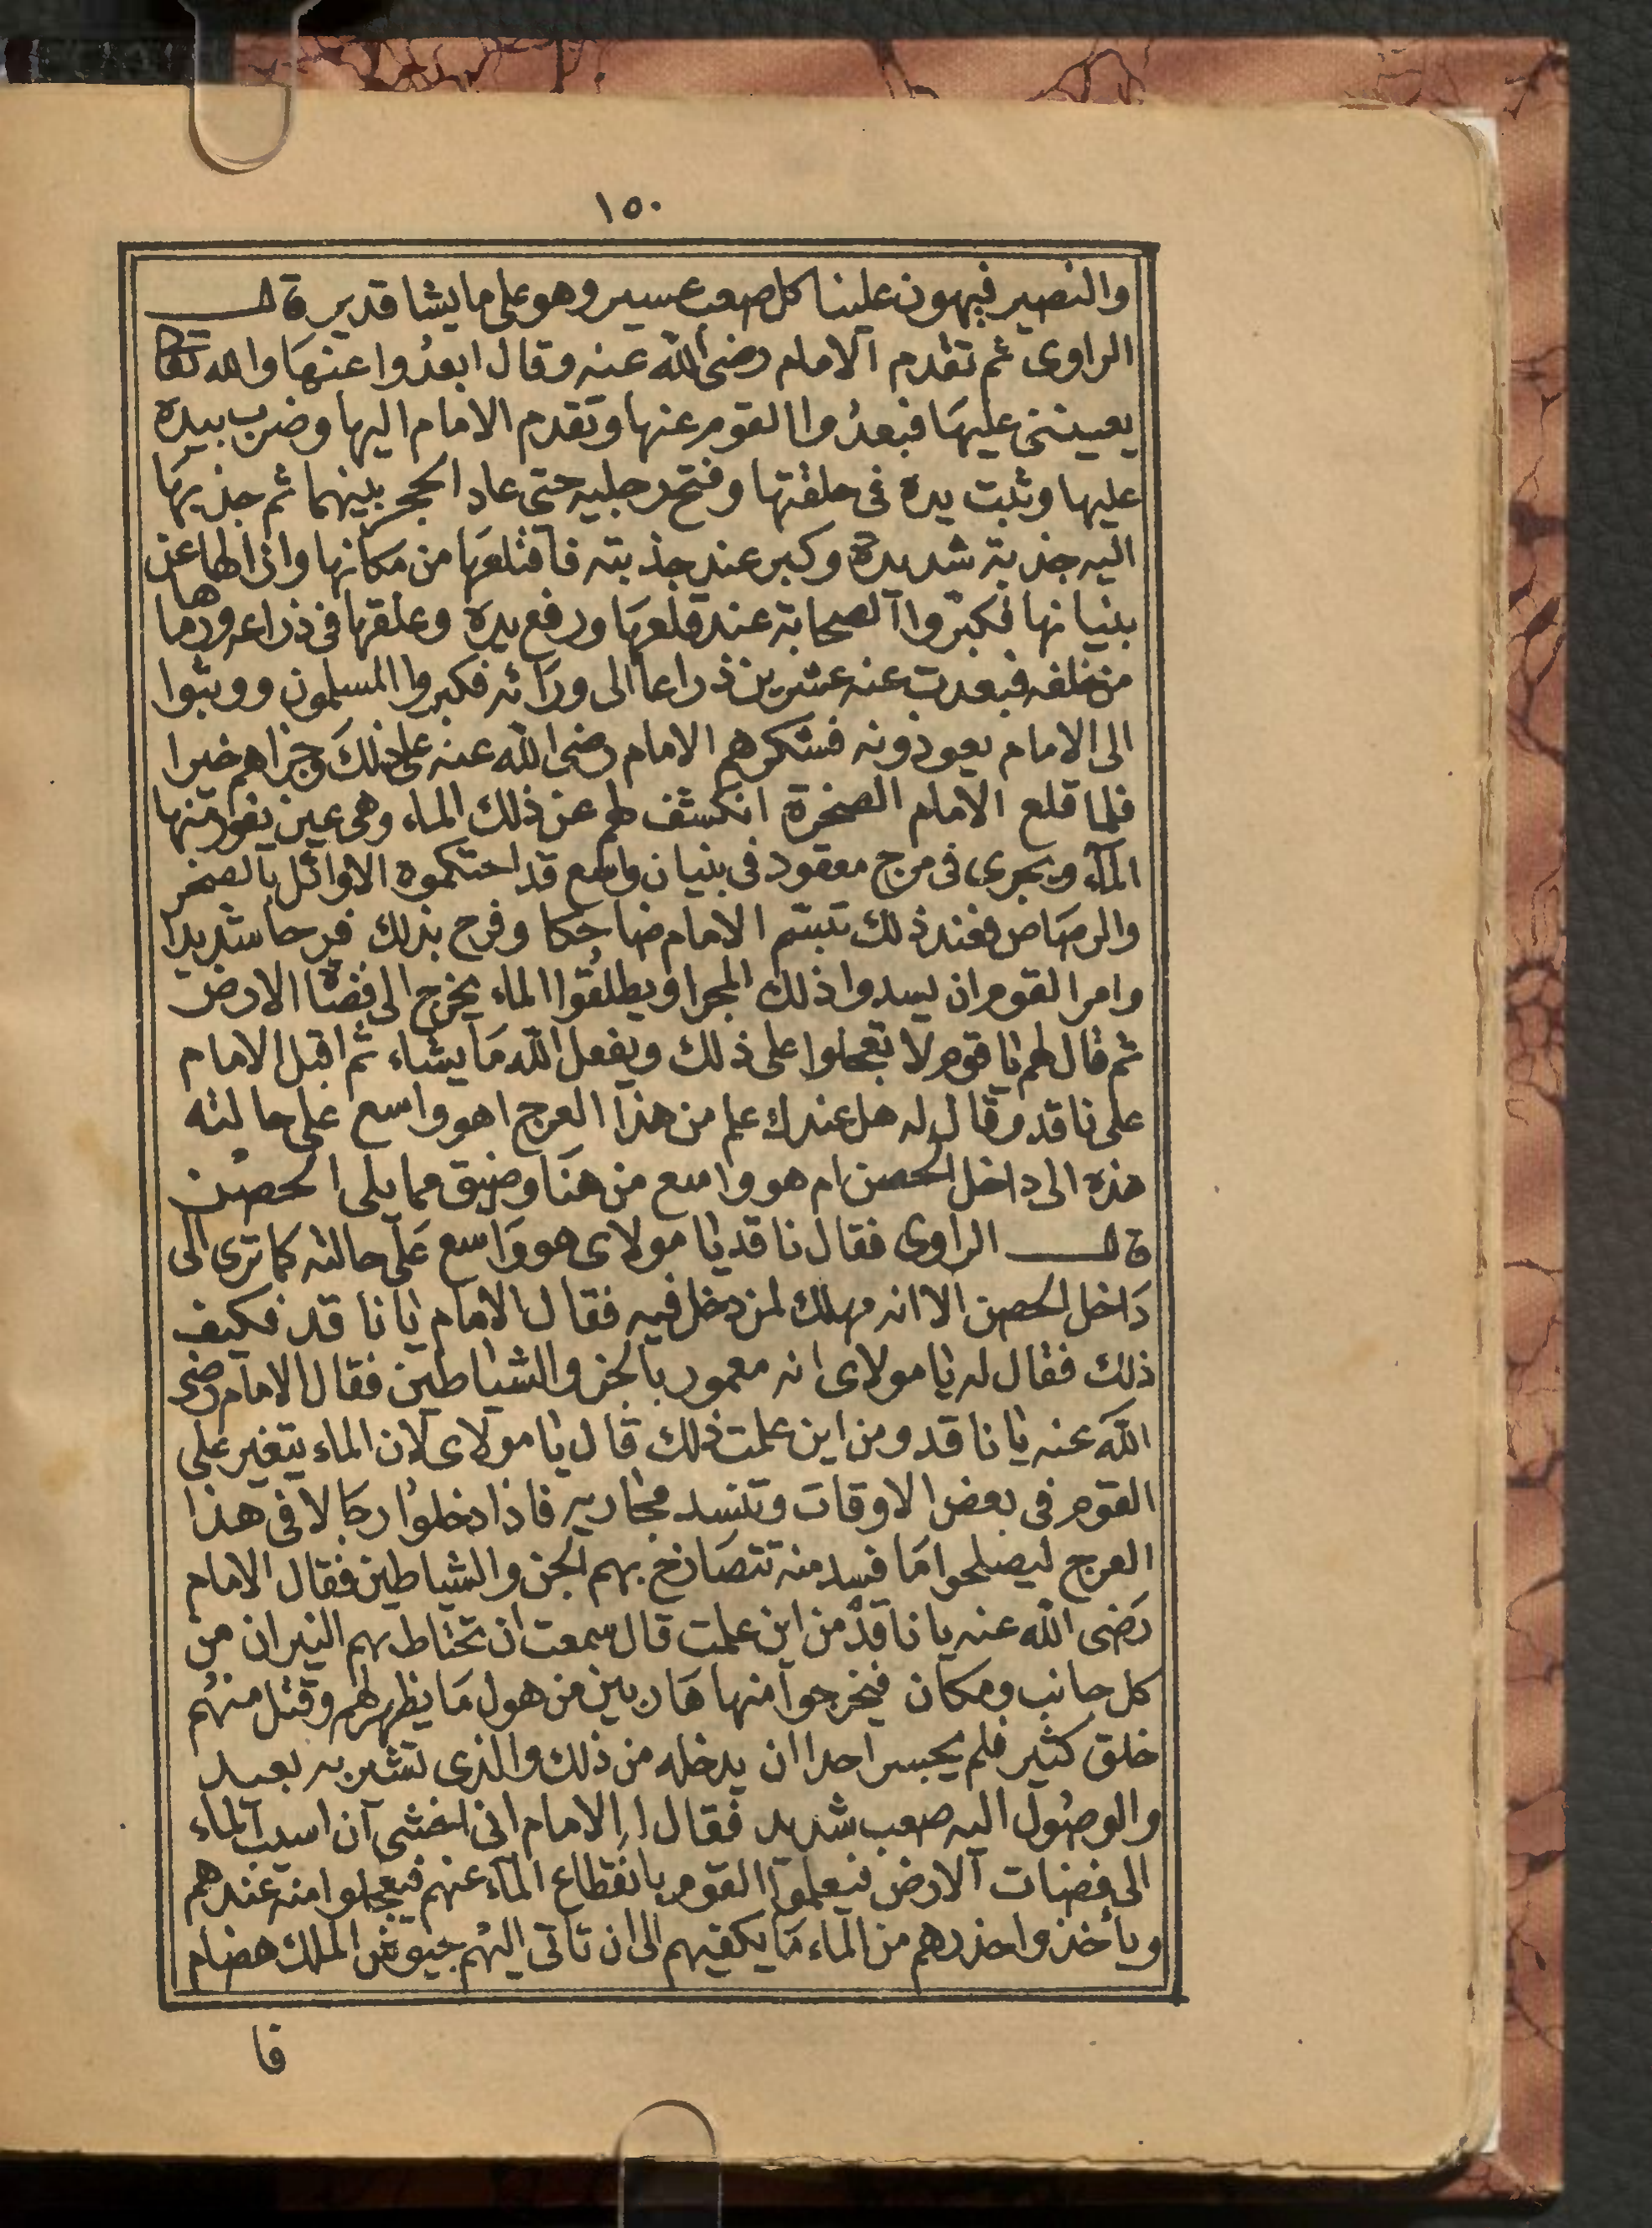 ١٥٠
والنصير فيهون علينا كل صعب عسير وهو على ما يشا قدير قال
الراوى ثم تقدم الامام رضى الله عنه وقال ابعدوا عنها والله تعا
يعيننى عليها فبعدوا القوم عنها وتقدم الامام اليها وضرب بيده
عليها وثبت يده فى حلقتها وفتح رجليه حتى عاد الحجر بينهما ثم جذبها
اليه جذبة شديدة وكبر عند جذبته فاقتلعها من مكانها وازالها عن
بنيانها فكبروا الصحابة عند قلعها ورفع يده وعلقها فى ذراعه ورماها
من خلفه فبعدت عنه عشرين ذراعا الى ورائه فكبروا المسلمون ووثبوا
الى الامام يعوذونه فشكرهم الامام رضى الله عنه على ذلك وجزاهم خيرا
فلما قلع الامام الصخرة انكشف لهم عن ذلك الماء وهى عين يفور منها
الماء ويجرى فى مرج معقود فى بنيان واسع قد احتكموه الاوائل بالصخر
والرصاص فعند ذلك تبسم الامام ضاحكا وفرح بذلك فرحا شديدا
وامر القوم ان يسدوا ذلك المجرا ويطلقوا الماء يخرج الى فضاة الارض
ثم قال لهم يا قوم لا تعجلوا على ذلك ويفعل الله ما يشاء ثم اقبل الامام
على ناقد وقال له هل عندك علم من هذا العرج اهو واسع على حالته
هذه الى داخل الحصن ام هو واسع من هنا وضيق مما يلى الحصن
قال الراوى فقال ناقد يا مولاى هو واسع على حالته كما ترى الى
داخل الحصن الا انه مهلك لمن دخل فيه فقال الامام يا ناقد فكيف
ذلك فقال له يا مولاى انه معمور بالجن والشياطين فقال الامام رضى
الله عنه يا ناقد ومن اين علمت ذلك قال يا مولاى لان الماء يتغير على
القوم فى بعض الاوقات وتنسد مجاريه فاذا دخلوا رجالا فى هذا
العرج ليصلحوا ما فسد منه تتصارخ بهم الجن والشياطين فقال الامام
رضى الله عنه يا ناقد من اين علمت قال سمعت ان تحتاط بهم النيران من
كل جانب ومكان فيخرجوا منها هاربين من هول ما يظهر لهم وقتل منهم
خلق كثير فلم يجسر احدا ان يدخله من ذلك والذى تشير به بعيد
والوصول اليه صعب شديد فقال الامام انى اخشى ان اسيب الماء
الى فضات الارض فيعلموا القوم بانقطاع الماء عنهم فيعجلوا منه عندهم
ويأخذوا حذرهم من الماء ما يكفيهم الى ان تاتى اليهم جيوش الملك هضام
فا